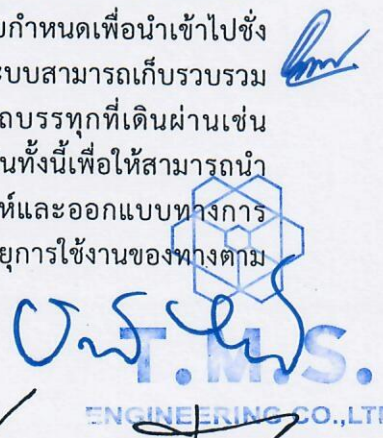 กำหนดเพื่อนำเข้าไปชั่ง
ระบบสามารถเก็บรวบรวม
ถบรรทุกที่เดินผ่านเช่น
นทั้งนี้เพื่อให้สามารถนำ
ห์และออกแบบทางการ
ยุการใช้งานของทางตาม
T.M.S.
ENGINEERING CO.,LTD